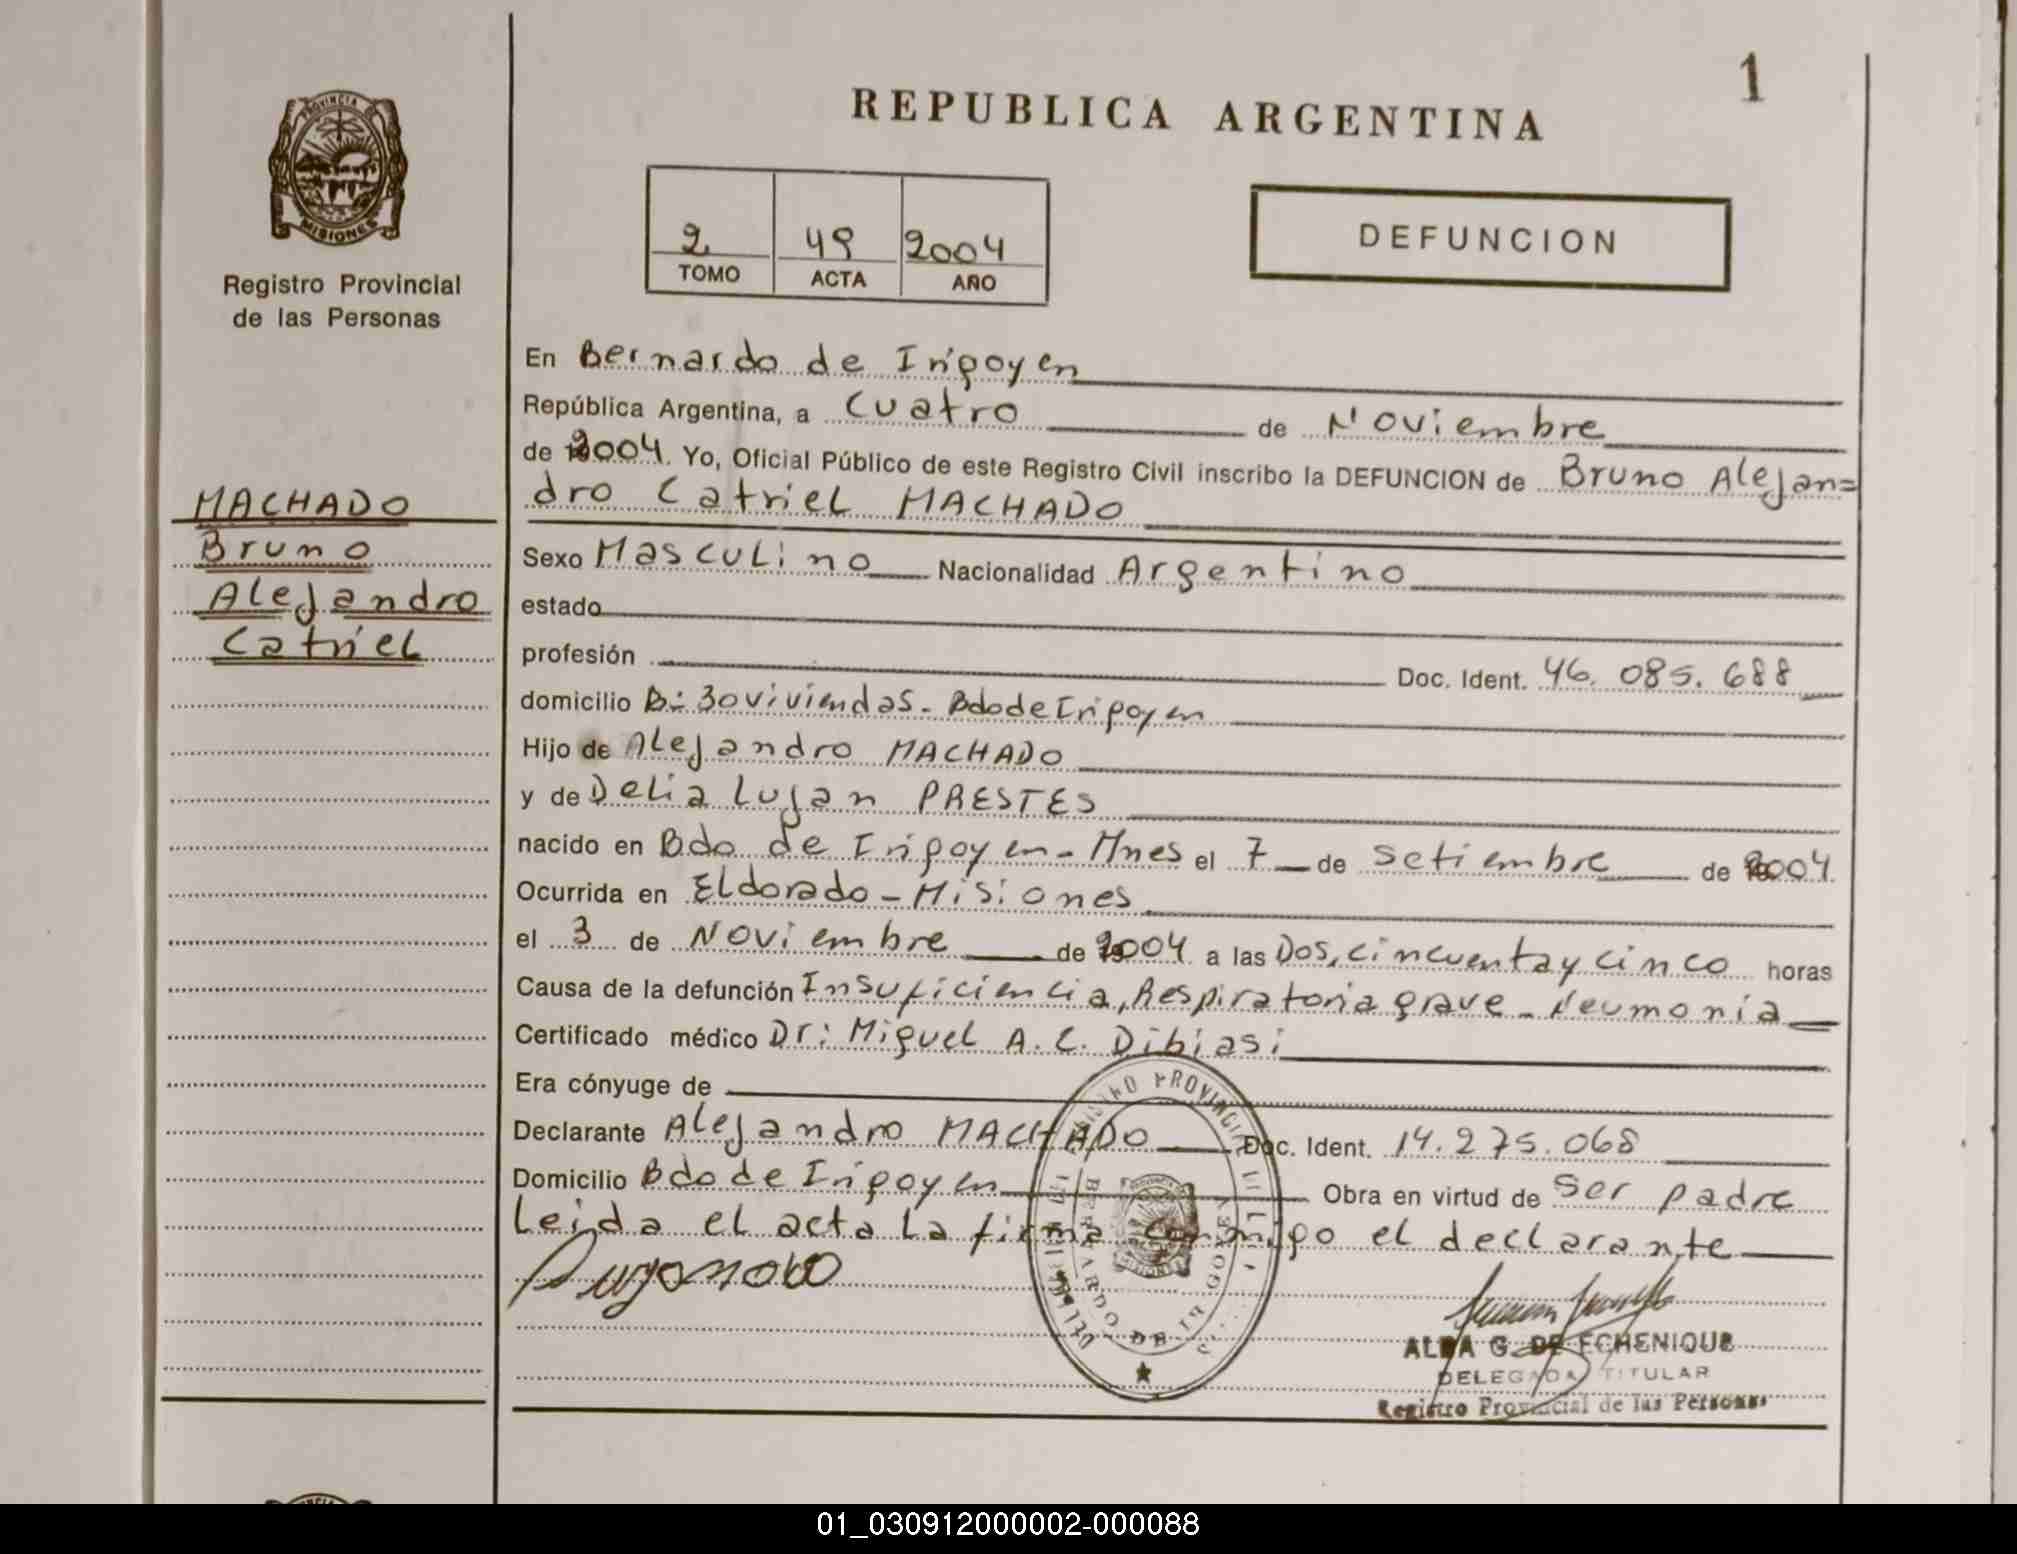 1
REPUBLICA ARGENTINA
PROVINCIA DE
MISIONES
Registro Provincial
de las Personas
2 49 2004
TOMO ACTA AÑO
DEFUNCION
En Bernardo de Irigoyen
República Argentina, a Cuatro de Noviembre
de 2004. Yo, Oficial Público de este Registro Civil inscribo la DEFUNCION de Bruno Alejan=
dro Catriel MACHADO
MACHADO
Bruno
Alejandro
Catriel
Sexo Masculino Nacionalidad Argentino
estado
profesión Doc. Ident. 46.085.688
domicilio B: 30 viviendas - Bdo de Irigoyen
Hijo de Alejandro MACHADO
y de Delia Lujan PRESTES
nacido en Bdo de Irigoyen - Mnes el 7 de Setiembre de 2004.
Ocurrida en Eldorado - Misiones
el 3 de Noviembre de 2004 a las Dos, cincuenta y cinco horas
Causa de la defunción Insuficiencia, Respiratoria grave - Neumonía
Certificado médico Dr: Miguel A. C. Dibiasi
Era cónyuge de
Declarante Alejandro MACHADO Doc. Ident. 14.275.068
Domicilio Bdo de Irigoyen Obra en virtud de Ser padre
Leida el acta la firma conmigo el declarante
REGISTRO PROVINCIAL DE LAS
BERNARDO DE IRIGOYEN
MISIONES
ALBA G. DE ECHENIQUE
DELEGADA TITULAR
Registro Provincial de las Personas
01_030912000002-000088